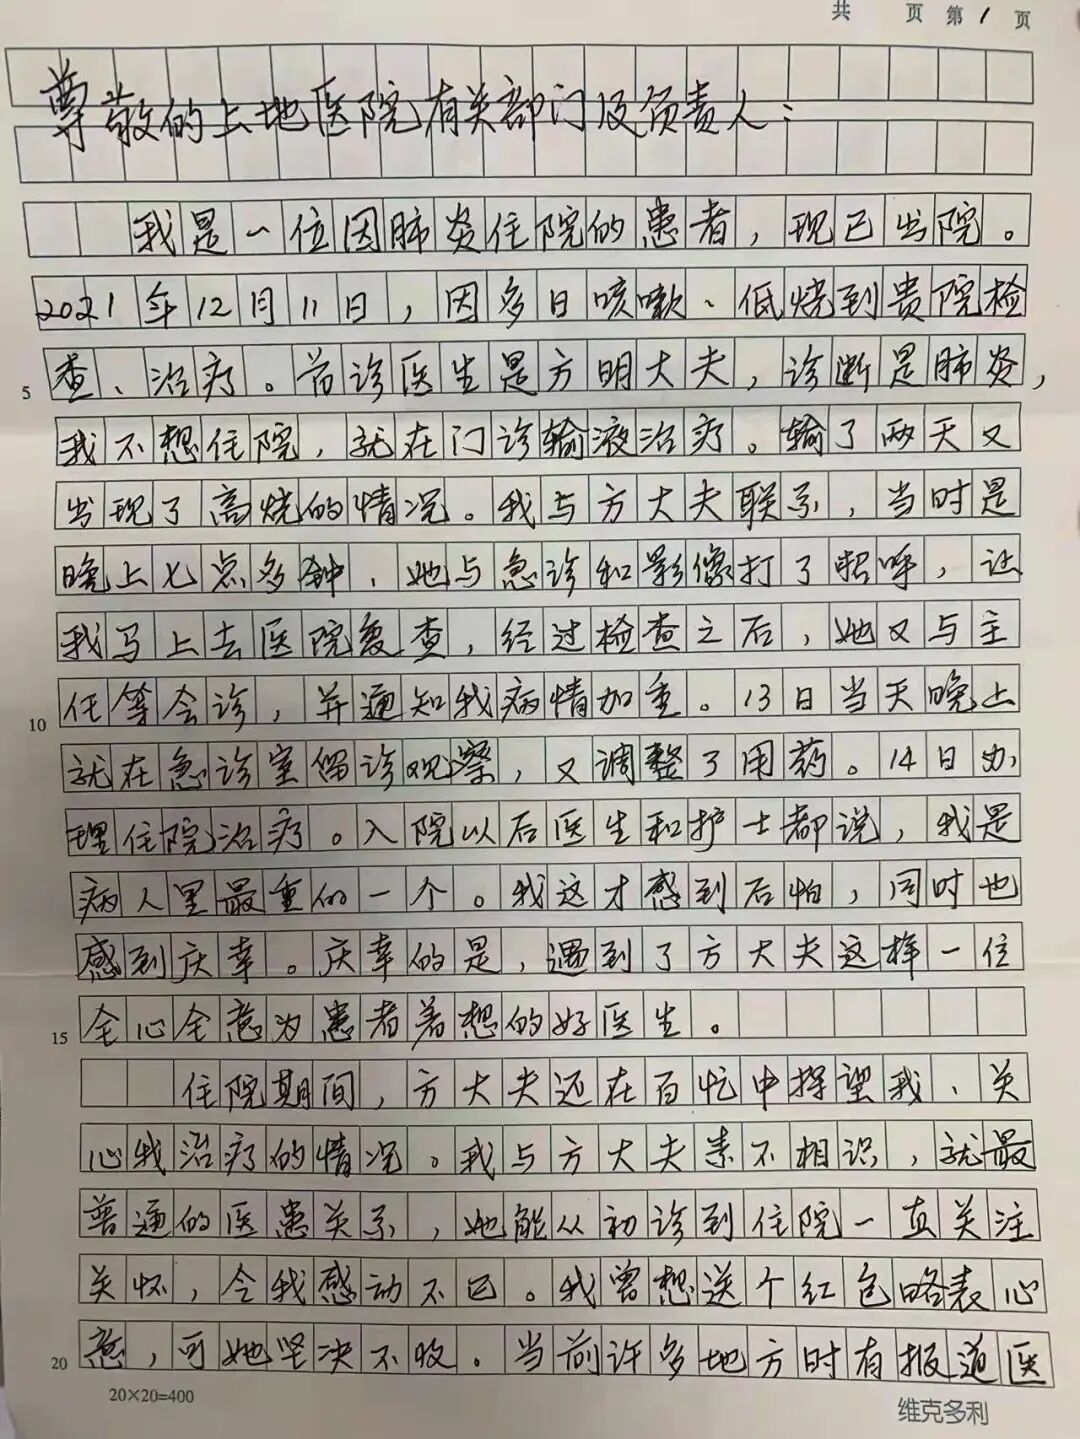 共 页 第 1 页
尊敬的上地医院有关部门及负责人：
我是一位因肺炎住院的患者，现已出院。
2021年12月11日，因多日咳嗽、低烧到贵院检
查、治疗。首诊医生是方明大夫，诊断是肺炎，
5
我不想住院，就在门诊输液治疗。输了两天又
出现了高烧的情况。我与方大夫联系，当时是
晚上七点多钟，她与急诊和影像打了招呼，让
我马上去医院复查，经过检查之后，她又与主
任等会诊，并通知我病情加重。13日当天晚上
10
就在急诊室留诊观察，又调整了用药。14日办
理住院治疗。入院以后医生和护士都说，我是
病人里最重的一个。我这才感到后怕，同时也
感到庆幸。庆幸的是，遇到了方大夫这样一位
全心全意为患者着想的好医生。
15
住院期间，方大夫还在百忙中探望我、关
心我治疗的情况。我与方大夫素不相识，就最
普通的医患关系，她能从初诊到住院一直关注
关怀，令我感动不已。我曾想送个红包略表心
意，可她坚决不收。当前许多地方时有报道医
20
20×20=400
维克多利